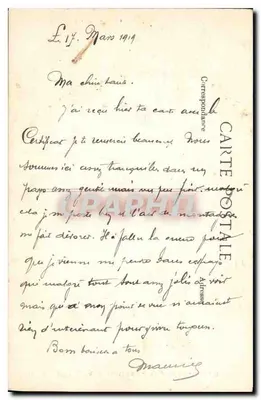 £ 17. Mars 1919
Ma chère
J'ai reçu hier ta carte avec le
Certificat je te remercie beaucoup Nous
sommes ici assez tranquilles dans un
pays assez gentil mais un peu froid, malgré
cela je me porte bien et l'air de
me fait dévorer. Il a fallu la guerre pour
que je vienne
qui malgré tout sont assez jolis à voir
mais que à mon point de vue n'auraient
rien d'intéressant pour y vivre toujours.
Bons baisers à tous
Maurice
CARTE POSTALE
Correspondance
Adresse